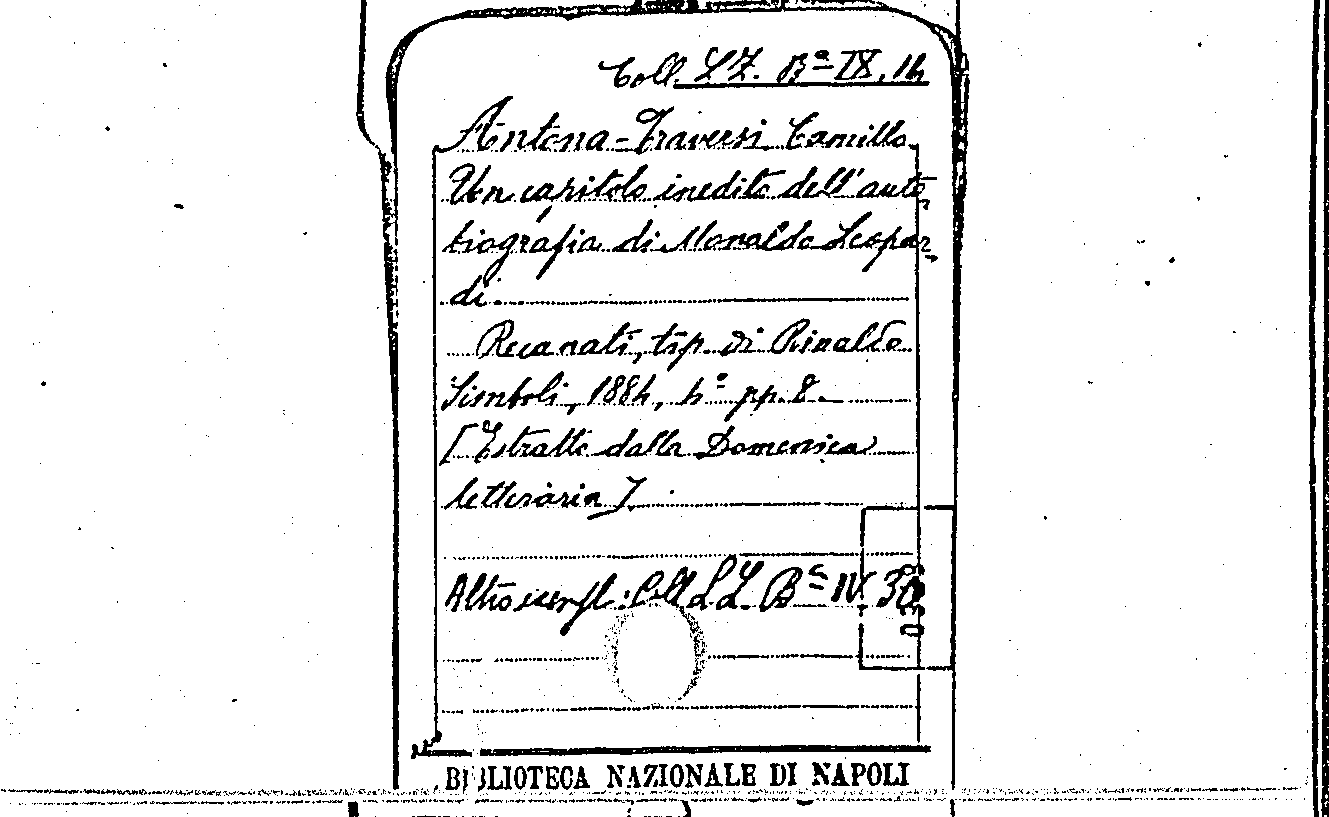 Coll. LZ. Bª IX. 14
Antona-Traversi Camillo
Un capitolo inedito dell'auto-
biografia di Monaldo Leopar-
di.
Recanati, tip. di Rinaldo
Simboli, 1884, 4º pp. 8.
[Estratto dalla Domenica
letteraria].
Altro esempl: Coll LZ Bª IV
BIBLIOTECA NAZIONALE DI NAPOLI